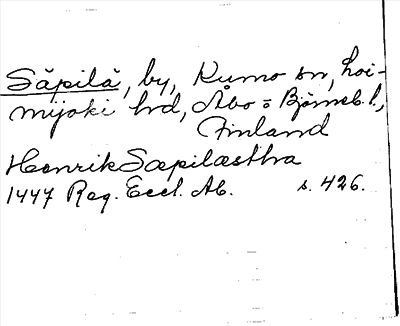 Säpilä, by, Kumo sn, Loi-
mijoki hd, Åbo o Björneb. l.,
Finland
Henrik Sæpilæstha
1447 Reg. Eccl. Ab. s. 426.